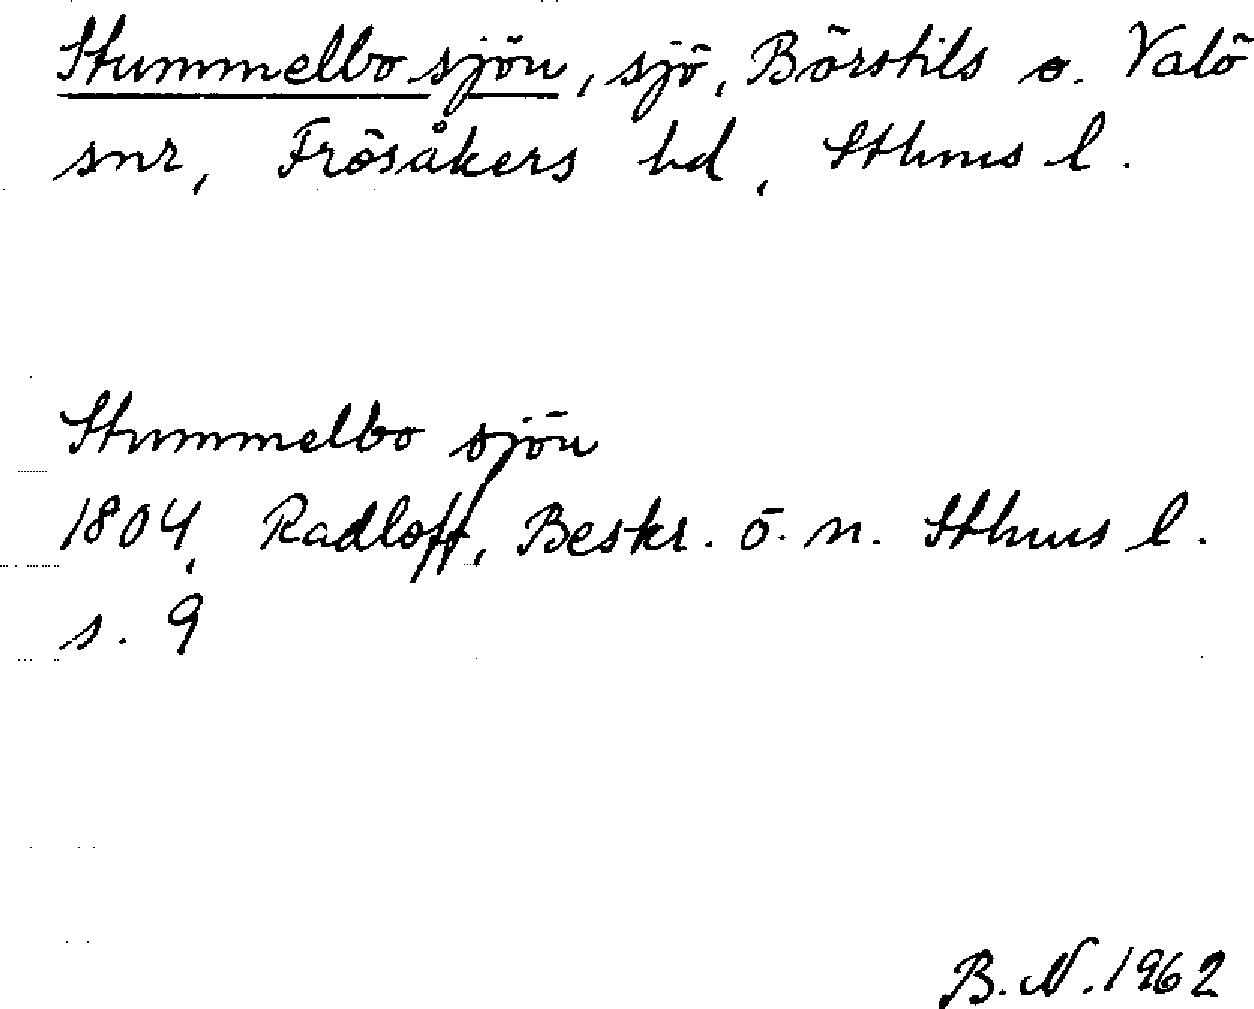 Stummelbosjön, sjö, Börstils o. Valö
snr, Frösåkers hd, Sthms l.
Stummelbo sjön
1804, Radloff, Beskr. ö. n. Sthms l.
s. 9
B. N. 1962